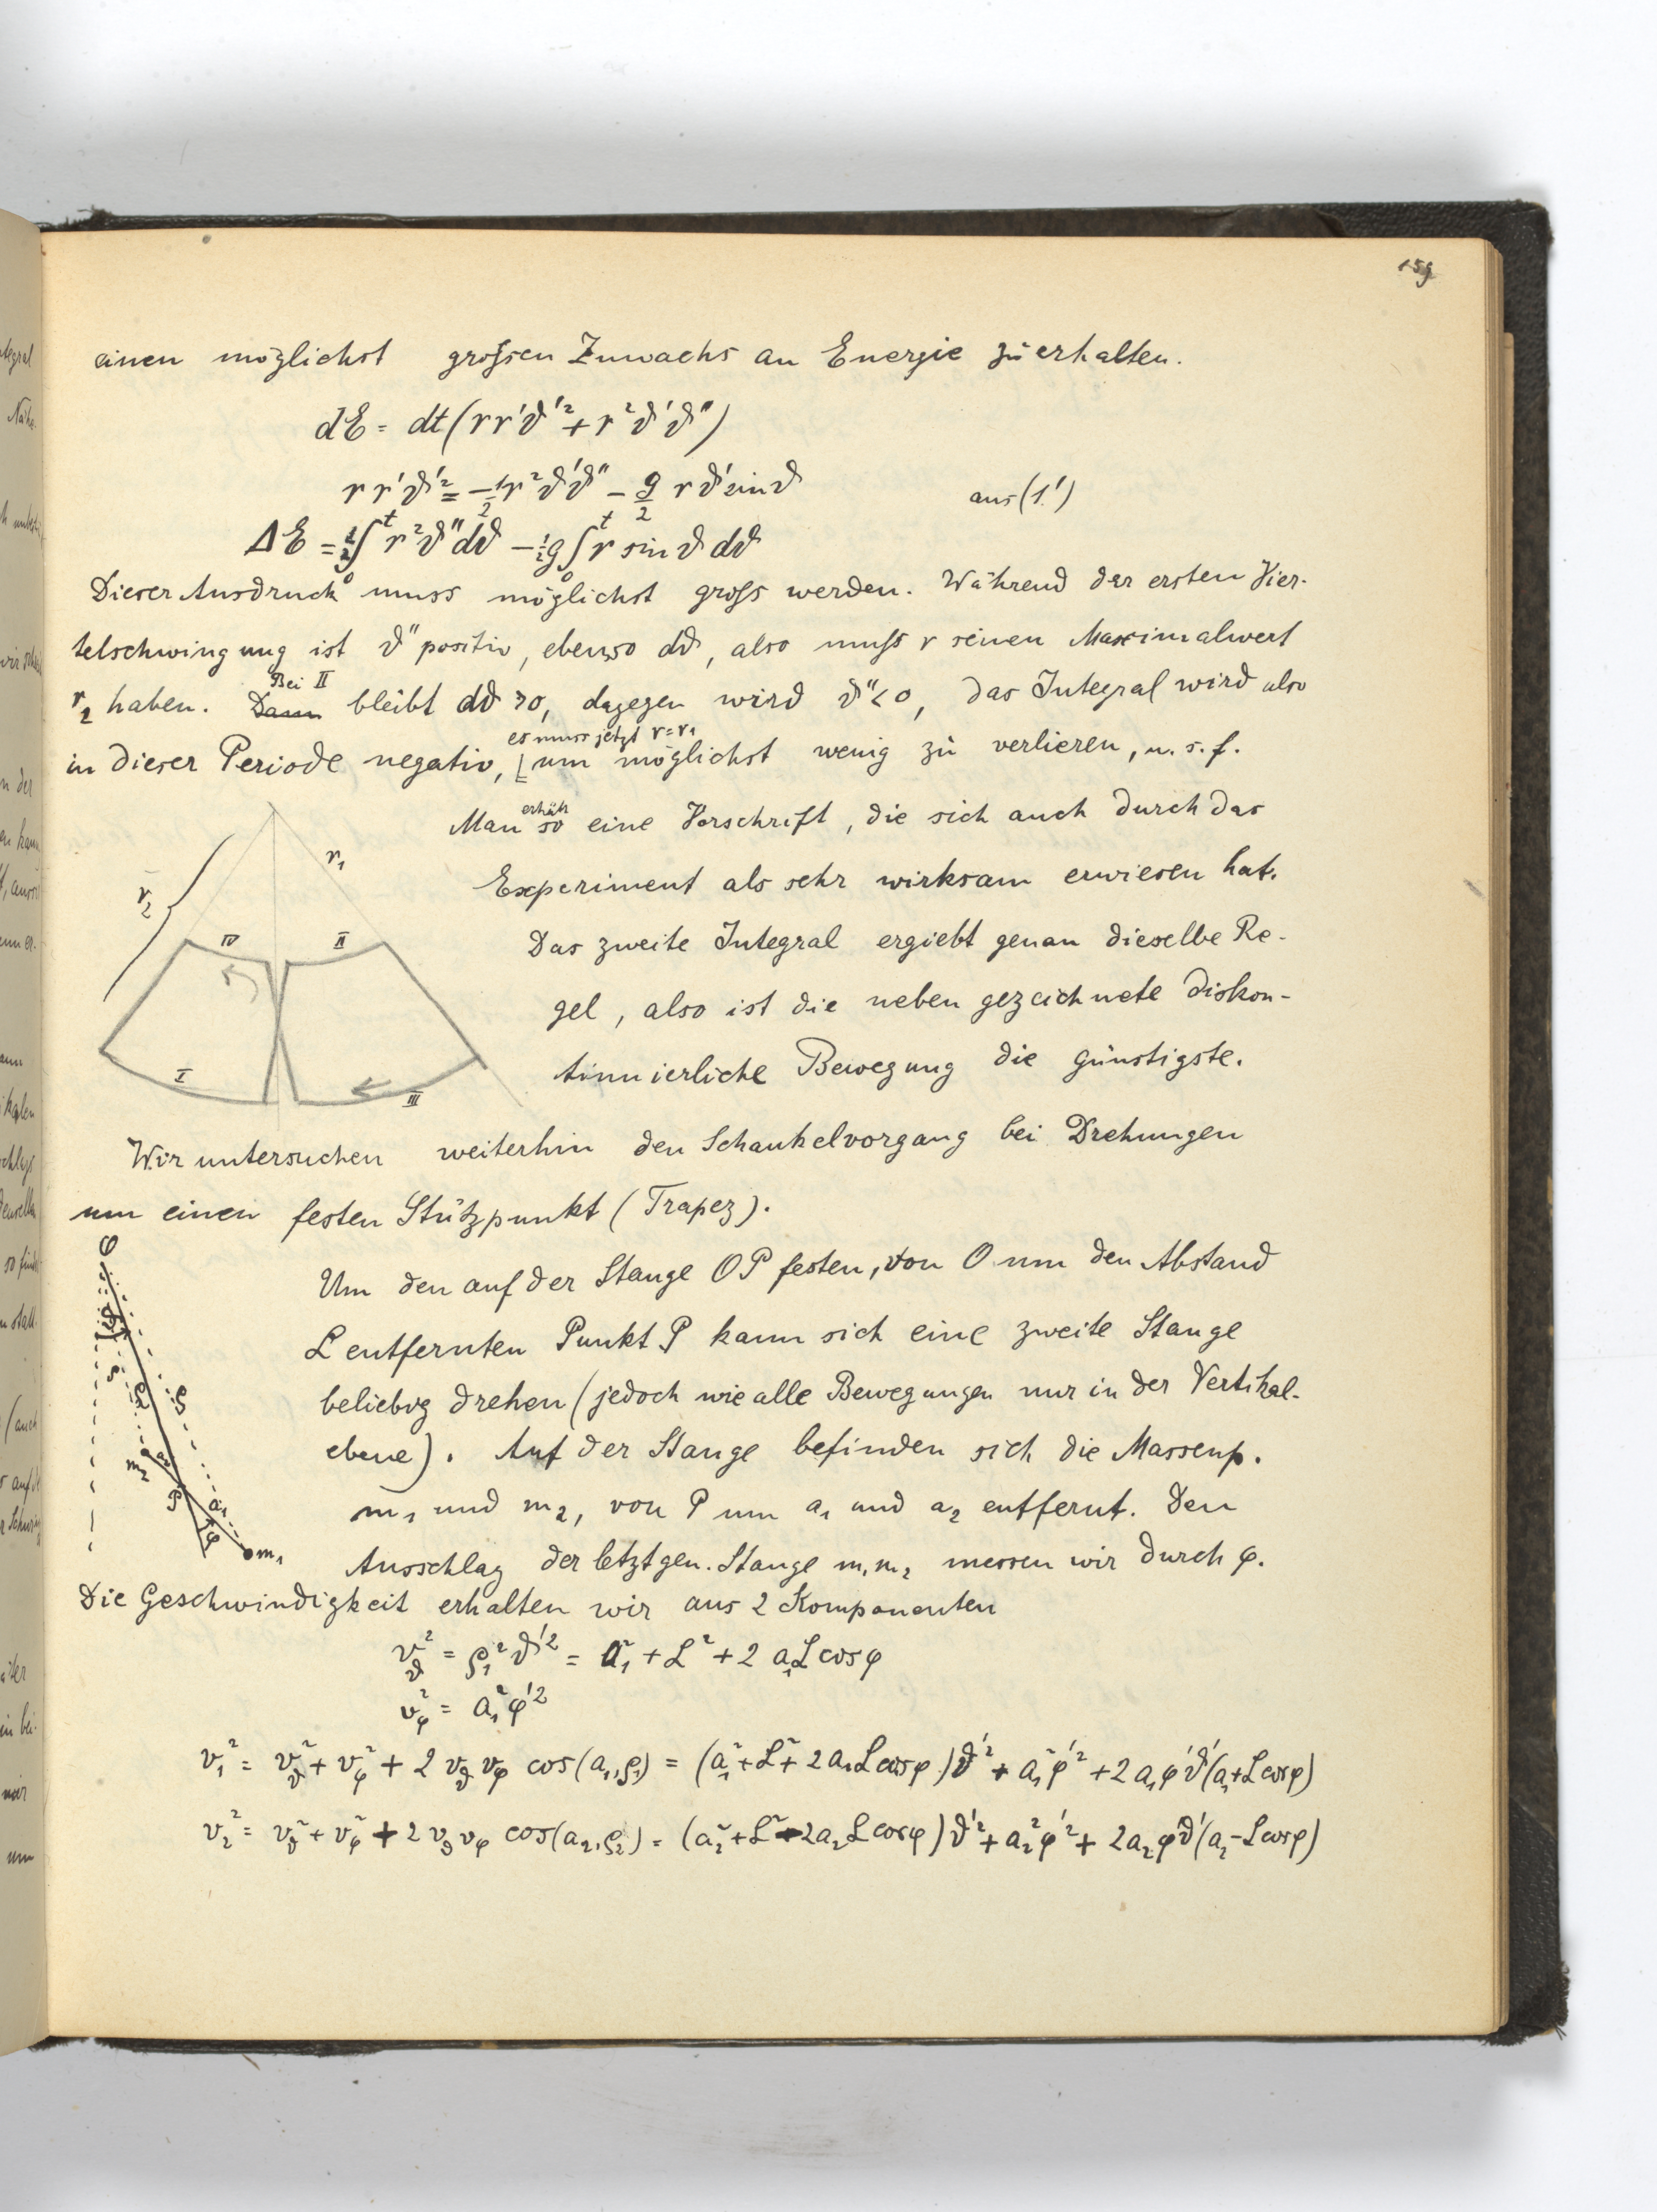 159
einen möglichst grossen Zuwachs an Energie zu erhalten.
dE = dt(rr'ϑ'² + r²ϑ'ϑ'')
rr'ϑ'² = -1/2 r²ϑ'ϑ'' - g/2 rϑ' sinϑ aus (1')
ΔE = 1/2 ∫₀ᵗ r²ϑ''dϑ - 1/2 g ∫₀ᵗ r sin ϑ dϑ
Dieser Ausdruck muss möglichst gross werden. Während der ersten Vier-
telschwingung ist ϑ'' positiv, ebenso dϑ, also muss r seinen Maximalwert
Bei II
r₂ haben. Dann bleibt dϑ > 0, dagegen wird ϑ'' < 0, das Integral wird also
es muss jetzt r = r₁
in dieser Periode negativ, um möglichst wenig zu verlieren, u. s. f.
erhält
Man so eine Vorschrift, die sich auch durch das
Experiment als sehr wirksam erwiesen hat.
Das zweite Integral ergiebt genau dieselbe Re-
gel, also ist die neben gezeichnete diskon-
tinuierliche Bewegung die günstigste.
r₁
r₂
IV II
I III
Wir untersuchen weiterhin den Schaukelvorgang bei Drehungen
um einen festen Stützpunkt (Trapez).
Um den auf der Stange OP festen, von O um den Abstand
L entfernten Punkt P kann sich eine zweite Stange
beliebig drehen (jedoch wie alle Bewegungen nur in der Vertikal-
ebene). Auf der Stange befinden sich die Massenp.
m₁ und m₂, von P um a₁ und a₂ entfernt. Den
Ausschlag der letztgen. Stange m₁m₂ messen wir durch φ.
O
ϑ
L
m₂ a₂
P a₁
φ m₁
Die Geschwindigkeit erhalten wir aus 2 Komponenten
v_ϑ² = ρ₁²ϑ'² = a₁² + L² + 2a₁L cosφ
v_φ² = a₁²φ'²
v₁² = v_ϑ² + v_φ² + 2v_ϑv_φ cos(a₁,ρ₁) = (a₁² + L² + 2a₁L cosφ)ϑ'² + a₁²φ'² + 2a₁φ'ϑ'(a₁ + L cosφ)
v₂² = v_ϑ² + v_φ² + 2v_ϑv_φ cos(a₂,ρ₂) = (a₂² + L² - 2a₂L cosφ)ϑ'² + a₂²φ'² + 2a₂φ'ϑ'(a₂ - L cosφ)